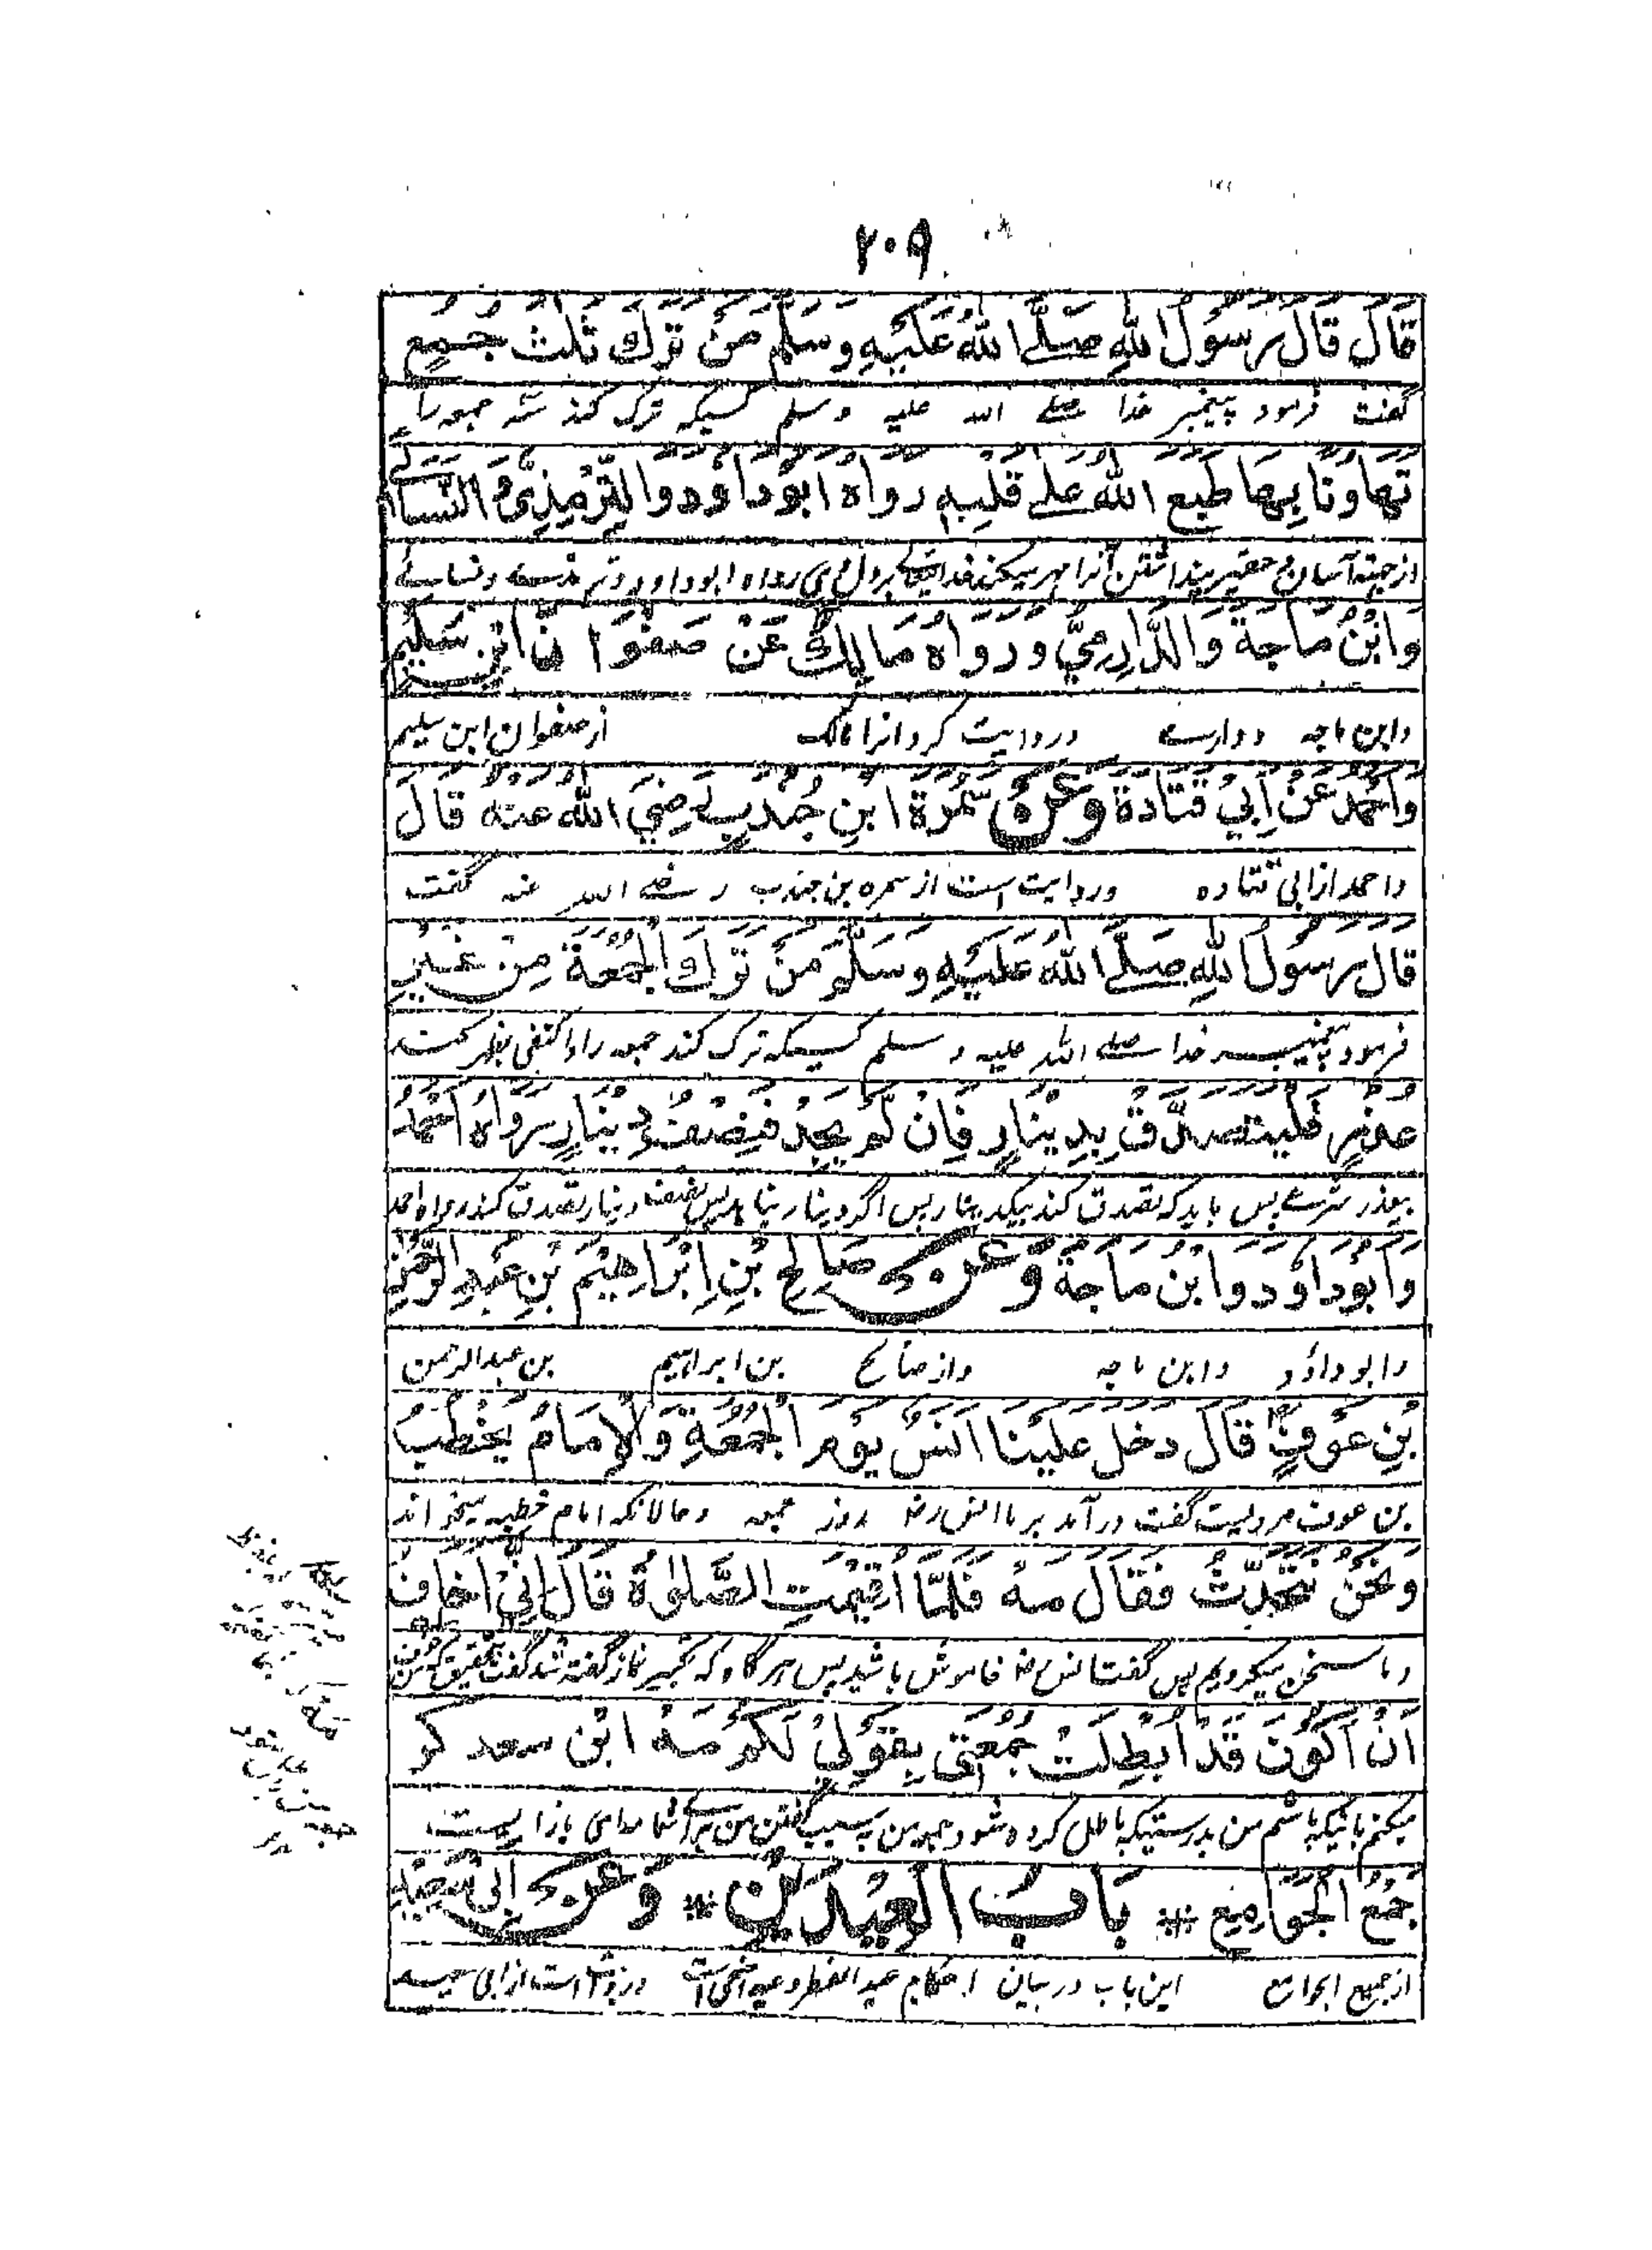 ٢٠٩
قَالَ قَالَ رَسُوْلُ اللهِ صَلَّے اللهُ عَلَيْهِ وَسَلَّمَ مَنْ تَرَكَ ثَلٰثَ جُمَعٍ
گفت فرمود پیغمبر خدا صلے الله علیه و سلم کسیکه ترک کند سه جمعه را
تَهَاوُنًا بِهَا طَبَعَ اللهُ عَلے قَلْبِهٖ رَوَاهُ اَبُوْ دَاوٗدَ وَالتِّرْمِذِيُّ النَّسَائے
از جهته آسان و حقیر پنداشتن آنرا مهر میکند خدایتعالے بر دل وی رواه ابوداود و ترمذے و نسائے
وَابْنُ مَاجَةَ وَالدَّارِمِيُّ وَرَوَاهُ مَالِكٌ عَنْ صَفْوَانَ ابْنِ سُلَيْمٍ
وابن ماجه و دارمے وروایت کرد انرا مالک از صفوان ابن سلیم
وَاَحْمَدُ عَنْ اَبِيْ قَتَادَةَ وَعَنْ سَمُرَةَ ابْنِ جُنْدُبٍ رَضِيَ اللهُ عَنْهُ قَالَ
واحمد از ابی قتاده وروایت است از سمره بن جندب رضے الله عنه گفت
قَالَ رَسُوْلُ اللهِ صَلَّے اللهُ عَلَيْهِ وَسَلَّمَ مَنْ تَرَكَ الْجُمُعَةَ مِنْ غَيْرِ
فرمود پیغمبر خدا صلے الله علیه و سلم کسیکه ترک کند جمعه را
عُذْرٍ فَلْيَتَصَدَّقْ بِدِيْنَارٍ فَاِنْ لَمْ يَجِدْ فَبِنِصْفِ دِيْنَارٍ رَوَاهُ اَحْمَدُ
بیعذر شرعے پس باید که تصدق کند بیکدینار پس اگر دینار نیابد پس بنصف دینار تصدق کند رواه احمد
وَاَبُوْ دَاوٗدَ وَابْنُ مَاجَةَ وَعَنْ صَالِحِ بْنِ اِبْرَاهِيْمَ بْنِ عَبْدِ الرَّحْمٰنِ
وابو داؤد وابن ماجه واز صالح بن ابراهیم بن عبدالرحمن
بْنِ عَوْفٍ قَالَ دَخَلَ عَلَيْنَا اَنَسٌ يَوْمَ الْجُمُعَةِ وَالْاِمَامُ يَخْطُبُ
بن عوف مرویست گفت در آمد بر ما انس رض روز جمعه وحالانکه امام خطبه میخواند
وَنَحْنُ نَتَحَدَّثُ فَقَالَ مَهْ فَلَمَّا اُقِيْمَتِ الصَّلٰوةُ قَالَ اِنِّيْ اَخَافُ
وما سخن میکردیم پس گفت انس رض خاموش باشید پس هرگاه که تکبیر نماز گفته شد گفت بتحقیق که من
اَنْ اَكُوْنَ قَدْ اَبْطَلْتُ جُمُعَتِيْ بِقَوْلِيْ لَكُمْ مَهْ ابْنُ سعد كر
میکنم باینکه باشم من بدرستیکه باطل کرده شود جمعه من بسبب گفتن من برائے شما
جَمْعُ الْجَوَامِعِ * بَابُ الْعِيْدَيْنِ * وَعَنْ اَبِيْ سَعِيْدٍ
از جمیع الجوامع این باب در بیان احکام عید الفطر وعید اضحی است وروایت است از ابی سعید